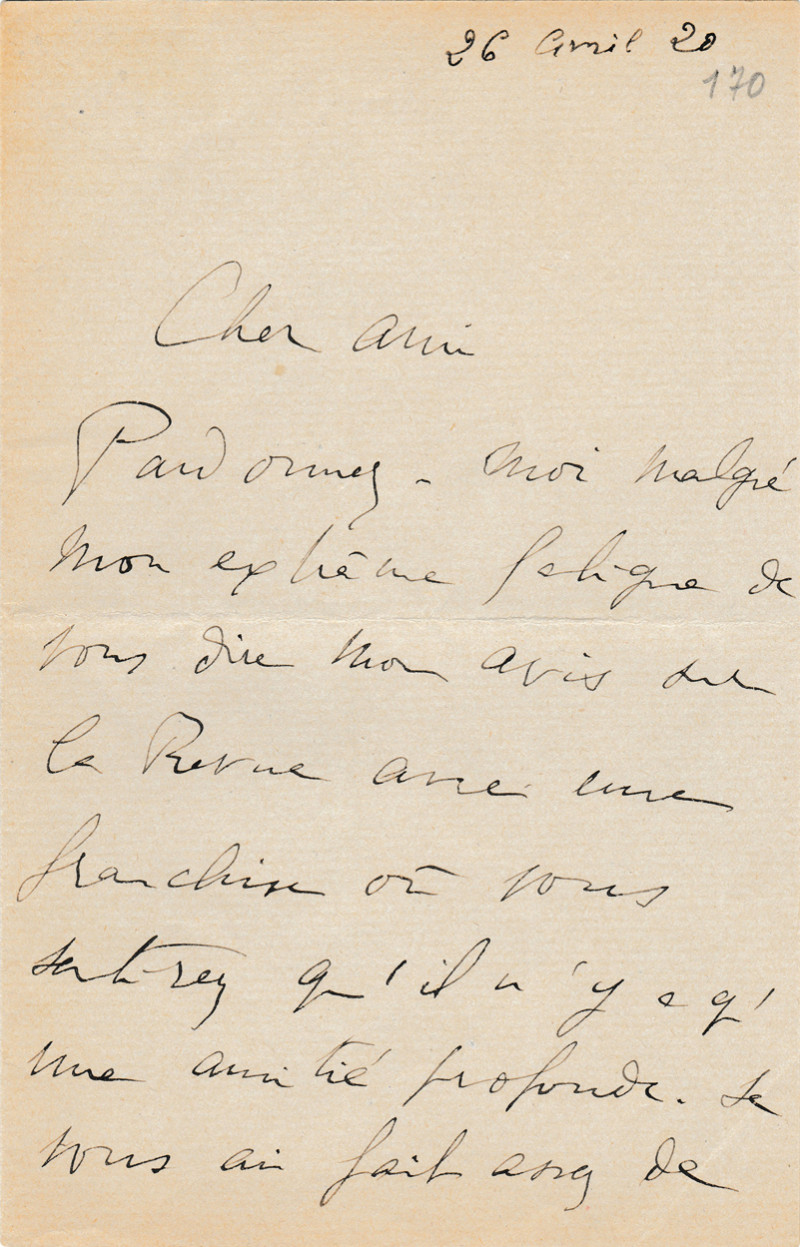 26 avril 20
170
Cher ami
Pardonnez-moi malgré
mon extrême fatigue de
vous dire mon avis sur
la Revue avec une
franchise où vous
sentirez qu'il n'y a qu'
une amitié profonde. Je
vous ai fait assez de